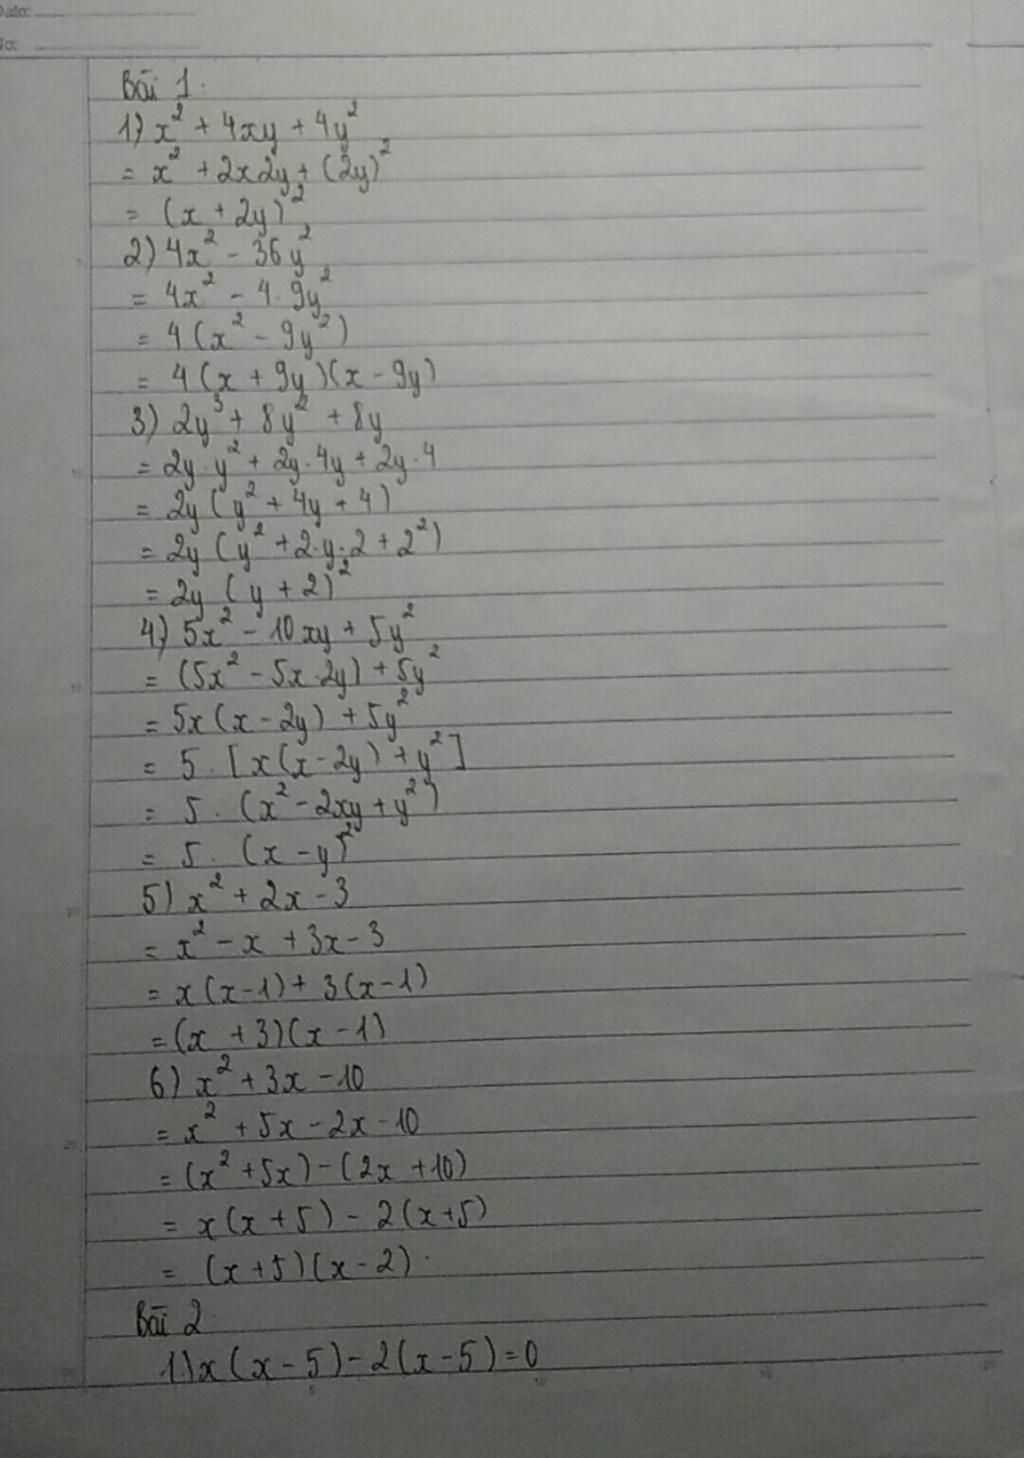 Date:
No:
Bài 1.
1) x² + 4xy + 4y²
= x² + 2x2y + (2y)²
= (x + 2y)²
2) 4x² - 36y²
= 4x² - 4.9y²
= 4(x² - 9y²)
= 4(x + 9y)(x - 9y)
3) 2y³ + 8y² + 8y
= 2y.y² + 2y.4y + 2y.4
= 2y(y² + 4y + 4)
= 2y(y² + 2.y.2 + 2²)
= 2y(y + 2)²
4) 5x² - 10xy + 5y²
= (5x² - 5x.2y) + 5y²
= 5x(x - 2y) + 5y²
= 5.[x(x - 2y) + y²]
= 5.(x² - 2xy + y²)
= 5.(x - y)²
5) x² + 2x - 3
= x² - x + 3x - 3
= x(x - 1) + 3(x - 1)
= (x + 3)(x - 1)
6) x² + 3x - 10
= x² + 5x - 2x - 10
= (x² + 5x) - (2x + 10)
= x(x + 5) - 2(x + 5)
= (x + 5)(x - 2).
Bài 2.
1.) x(x - 5) - 2(x - 5) = 0